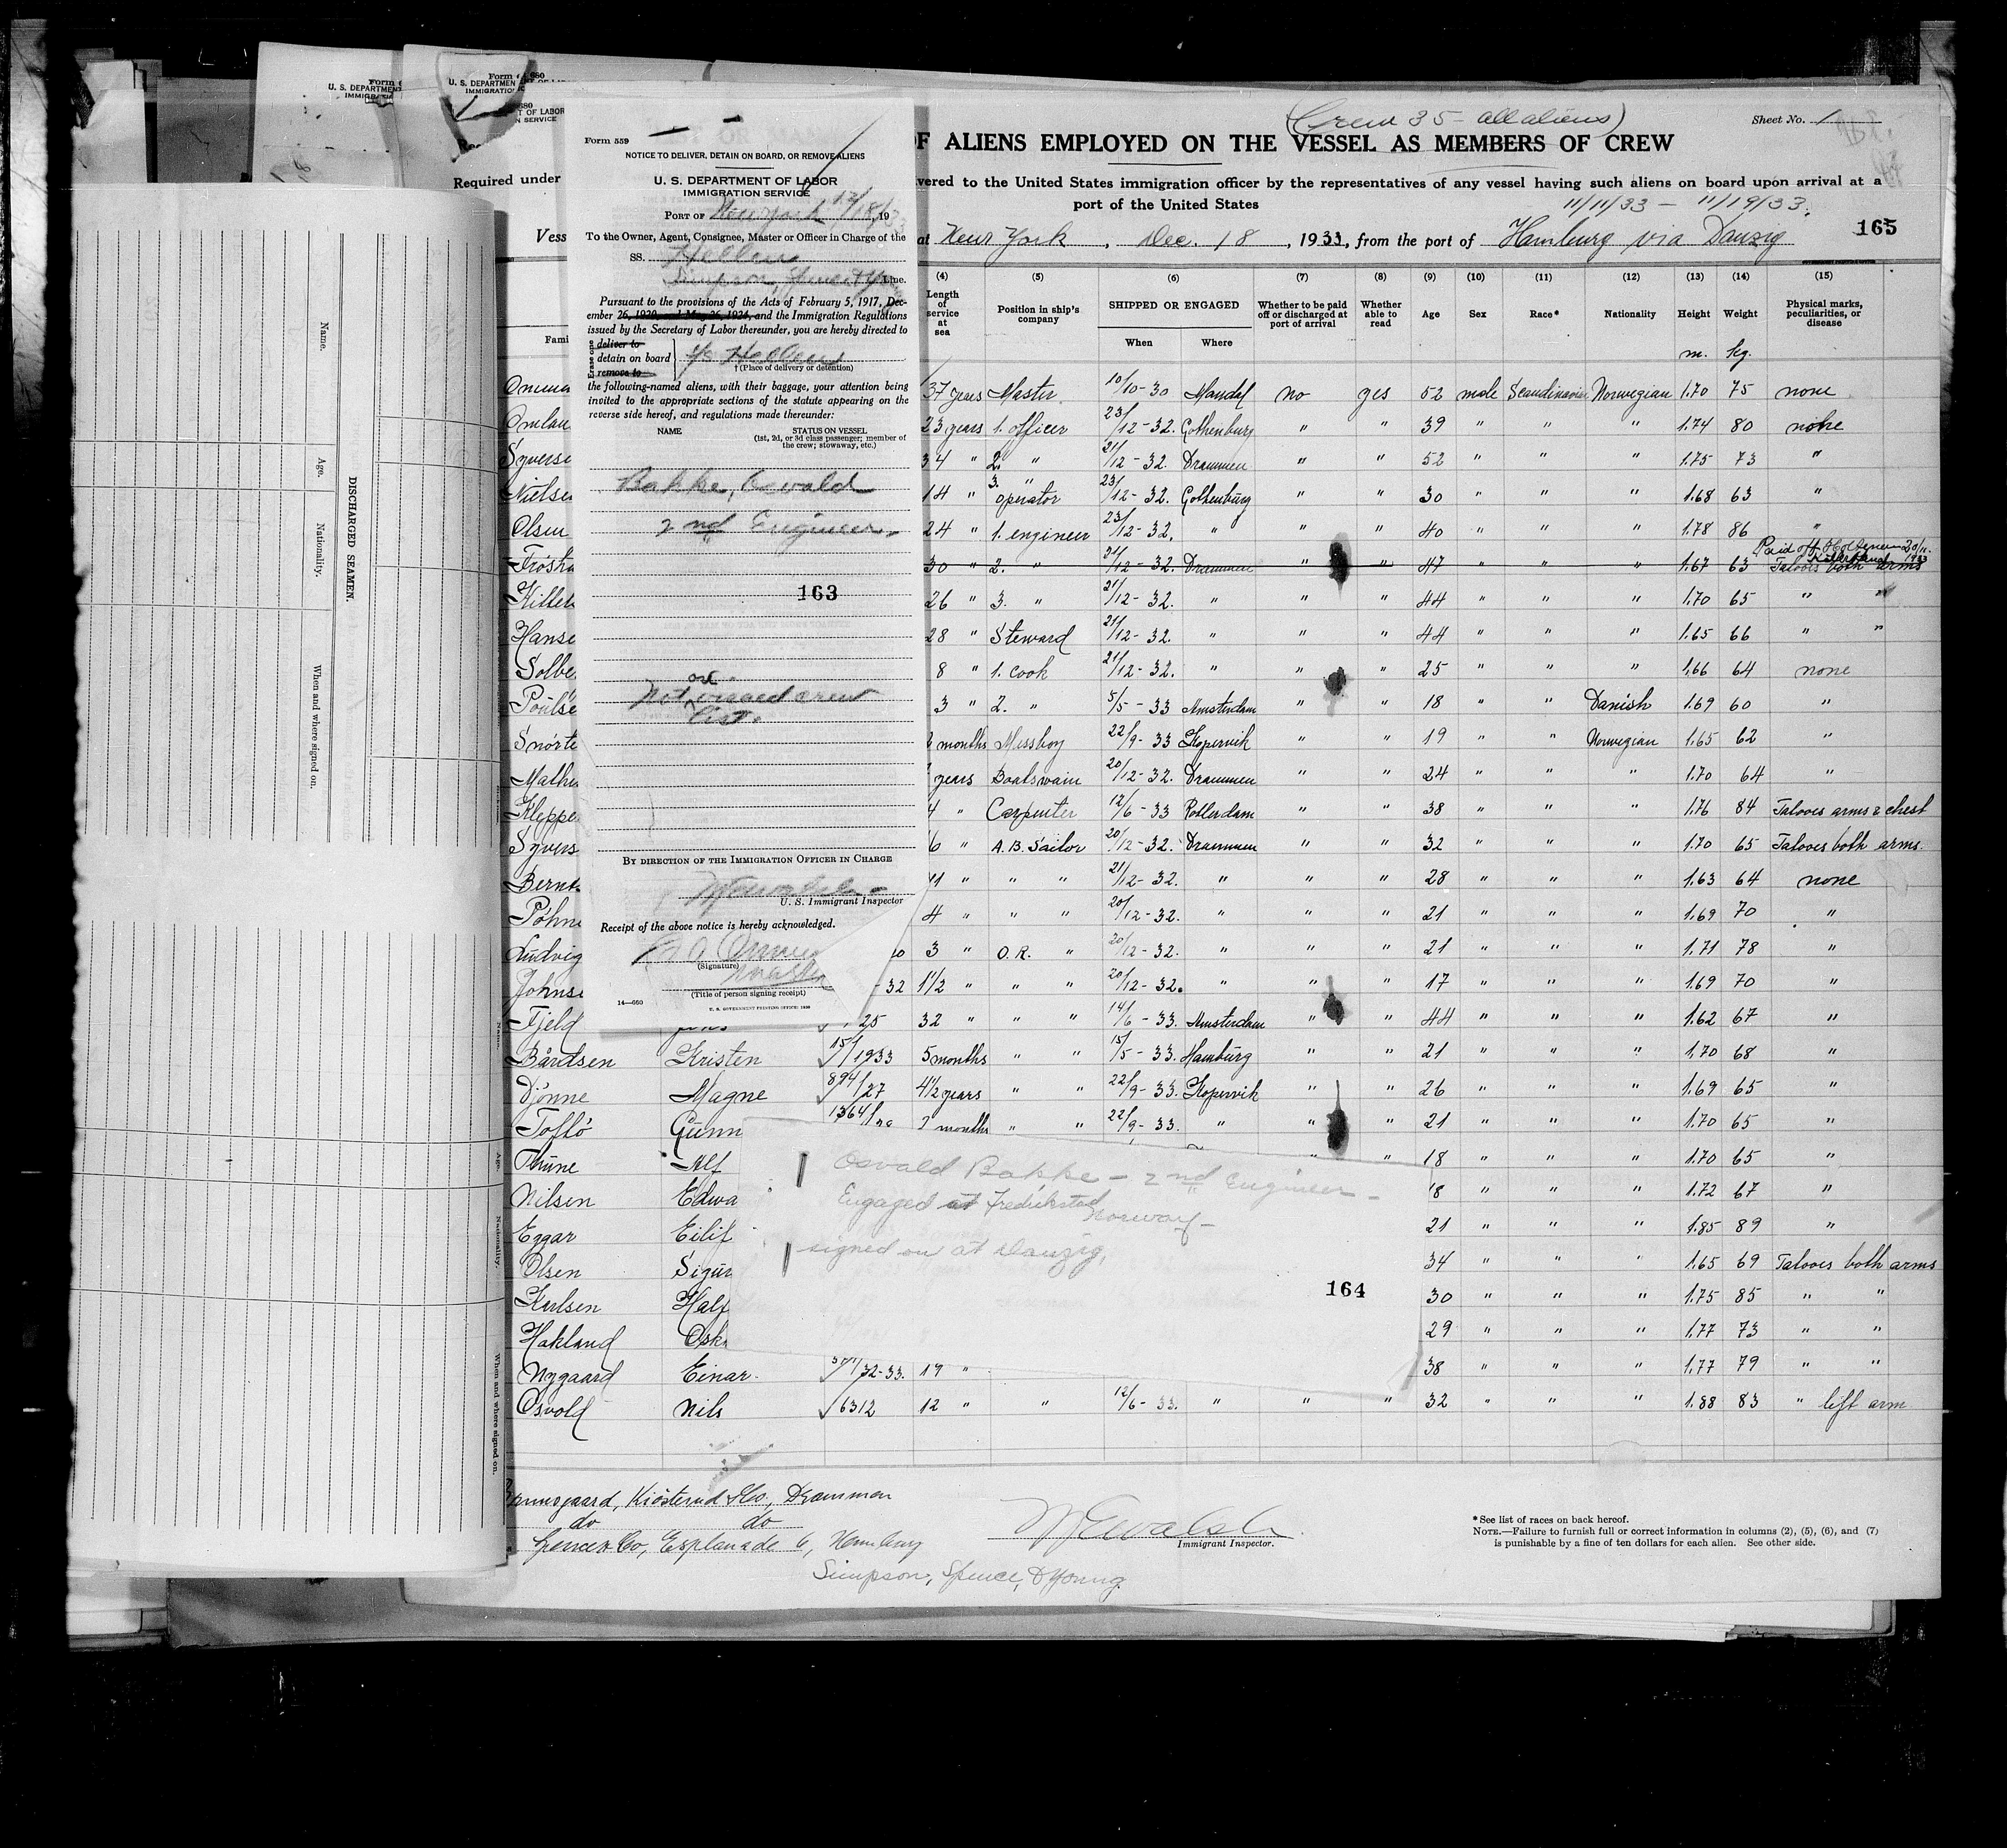 Form 680
U. S. DEPARTMENT
IMMIGRATION
Form 680
U. S. DEPARTMENT OF LABOR
IMMIGRATION
OF LABOR
N SERVICE
Required under
Form 559
NOTICE TO DELIVER, DETAIN ON BOARD, OR REMOVE ALIENS
U. S. DEPARTMENT OF LABOR
IMMIGRATION SERVICE
PORT OF New York, 12/18, 1933
To the Owner, Agent, Consignee, Master or Officer in Charge of the
SS. Hellen
Simpson, Spence & Young Line.
Pursuant to the provisions of the Acts of February 5, 1917, Dec-
ember 26, 1920, and May 26, 1924, and the Immigration Regulations
issued by the Secretary of Labor thereunder, you are hereby directed to
Erase one
deliver to
detain on board
remove to
s/s Hellen
† (Place of delivery or detention)
the following-named aliens, with their baggage, your attention being
invited to the appropriate sections of the statute appearing on the
reverse side hereof, and regulations made thereunder:
NAME STATUS ON VESSEL
(1st, 2d, or 3d class passenger; member of
the crew; stowaway, etc.)
Bakke, Oswald
2nd Engineer
163
Not on visaed crew
list.
BY DIRECTION OF THE IMMIGRATION OFFICER IN CHARGE
W E Walsh
U. S. Immigrant Inspector
Receipt of the above notice is hereby acknowledged.
(Signature)
Master
(Title of person signing receipt)
14—660
U. S. GOVERNMENT PRINTING OFFICE: 1930
(Crew 35 - all aliens)
Sheet No. 1
OF ALIENS EMPLOYED ON THE VESSEL AS MEMBERS OF CREW
vered to the United States immigration officer by the representatives of any vessel having such aliens on board upon arrival at a
port of the United States
11/11/33 - 11/19/33.
165
Vess
at New York, Dec. 18, 1933, from the port of Hamburg via Danzig
(4) (5) (6) (7) (8) (9) (10) (11) (12) (13) (14) (15)
Length of service at sea
Position in ship's company
SHIPPED OR ENGAGED
When Where
Whether to be paid off or discharged at port of arrival
Whether able to read
Age Sex Race* Nationality Height Weight
Physical marks, peculiarities, or disease
Fami
m. kg.
37 years Master 10/10-30 Mandal no yes 52 male Scandinavian Norwegian 1.70 75 none
Omlau 23 years 1. officer 23/12-32. Gothenburg " " 39 " " " 1.74 80 none
Syverse 34 " 2. " 21/12-32. Drammen " " 52 " " " 1.75 73 "
Nielse 14 " 3. " operator 23/12-32. Gothenburg " " 30 " " " 1.68 63 "
Olsen 24 " 1. engineer 23/12-32. " " " 40 " " " 1.78 86 "
Paid off Holtenau 20/11. 1933
30 " 2. " 21/12-32. Drammen " " 47 " " " 1.67 63 Tatoos both arms
26 " 3. " 21/12-32. " " " 44 " " " 1.70 65 " "
Hanse 28 " Steward 21/12-32. " " " 44 " " " 1.65 66 " "
Solbe 8 " 1. cook 21/12-32. " " " 25 " " " 1.66 64 none
Poulse 3 " 2. " 5/5-33 Amsterdam " " 18 " " Danish 1.69 60 "
Snorte months Messboy 22/9-33 Kopervik " " 19 " " Norwegian 1.65 62 "
Mathi years Boatswain 20/12-32. Drammen " " 24 " " " 1.70 64 "
Kleppe 4 " Carpenter 12/6-33 Rotterdam " " 38 " " " 1.76 84 Tatooes arms & chest
Syvers 6 " A.B. Sailor 20/12-32. Drammen " " 32 " " " 1.70 65 Tatooes both arms.
Bernt 11 " " " 21/12-32. " " " 28 " " " 1.63 64 none
Pohne 4 " " " 20/12-32. " " " 21 " " " 1.69 70 "
Ludvig 3 " O.R. " 20/12-32. " " 21 " " " 1.71 78 "
Johnse -32 1 1/2 " " " 20/12-32. " " " 17 " " " 1.69 70 "
Fjeld 25 32 " " " 14/6-33. Amsterdam " " 44 " " " 1.62 67 "
Bårdsen Kristen 151/1933 5 months " " 15/5-33. Hamburg " " 21 " " " 1.70 68 "
Djønne Magne 894/27 4 1/2 years " " 22/9-33. Kopervik " " 26 " " " 1.69 65 "
Toflö Gunn 1364/ months " " 22/9-33. " " " 21 " " " 1.70 65 "
Thune Alf 18 " " " 1.70 65 "
Nilsen Edwa 18 " " " 1.72 67 "
Eggar Eilif 21 " " " 1.85 89 "
Olsen Sigur 34 " " " 1.65 69 Tatooes both arms
Karlsen Half 30 " " " 1.75 85 " "
Hakland Oska 29 " " " 1.77 73 " "
Nygaard Einar. 32-33. 19 " 38 " " " 1.77 79 " "
Osvold Nils 6312 12 " " 12/6-33. " " " 32 " " " 1.88 83 " left arm
Osvald Bakke - 2nd Engineer -
Engaged at Fredrikstad
Norway -
signed on at Danzig,
164
Drammen
do do
Spence & Co, Esplanade 6, Hamburg
Simpson, Spence, & Young
W E Walsh
Immigrant Inspector.
* See list of races on back hereof.
NOTE.—Failure to furnish full or correct information in columns (2), (5), (6), and (7)
is punishable by a fine of ten dollars for each alien. See other side.
DISCHARGED SEAMEN.
Name.
Age.
Nationality.
When and where signed on.
Name.
Age.
Nationality.
When and where signed on.